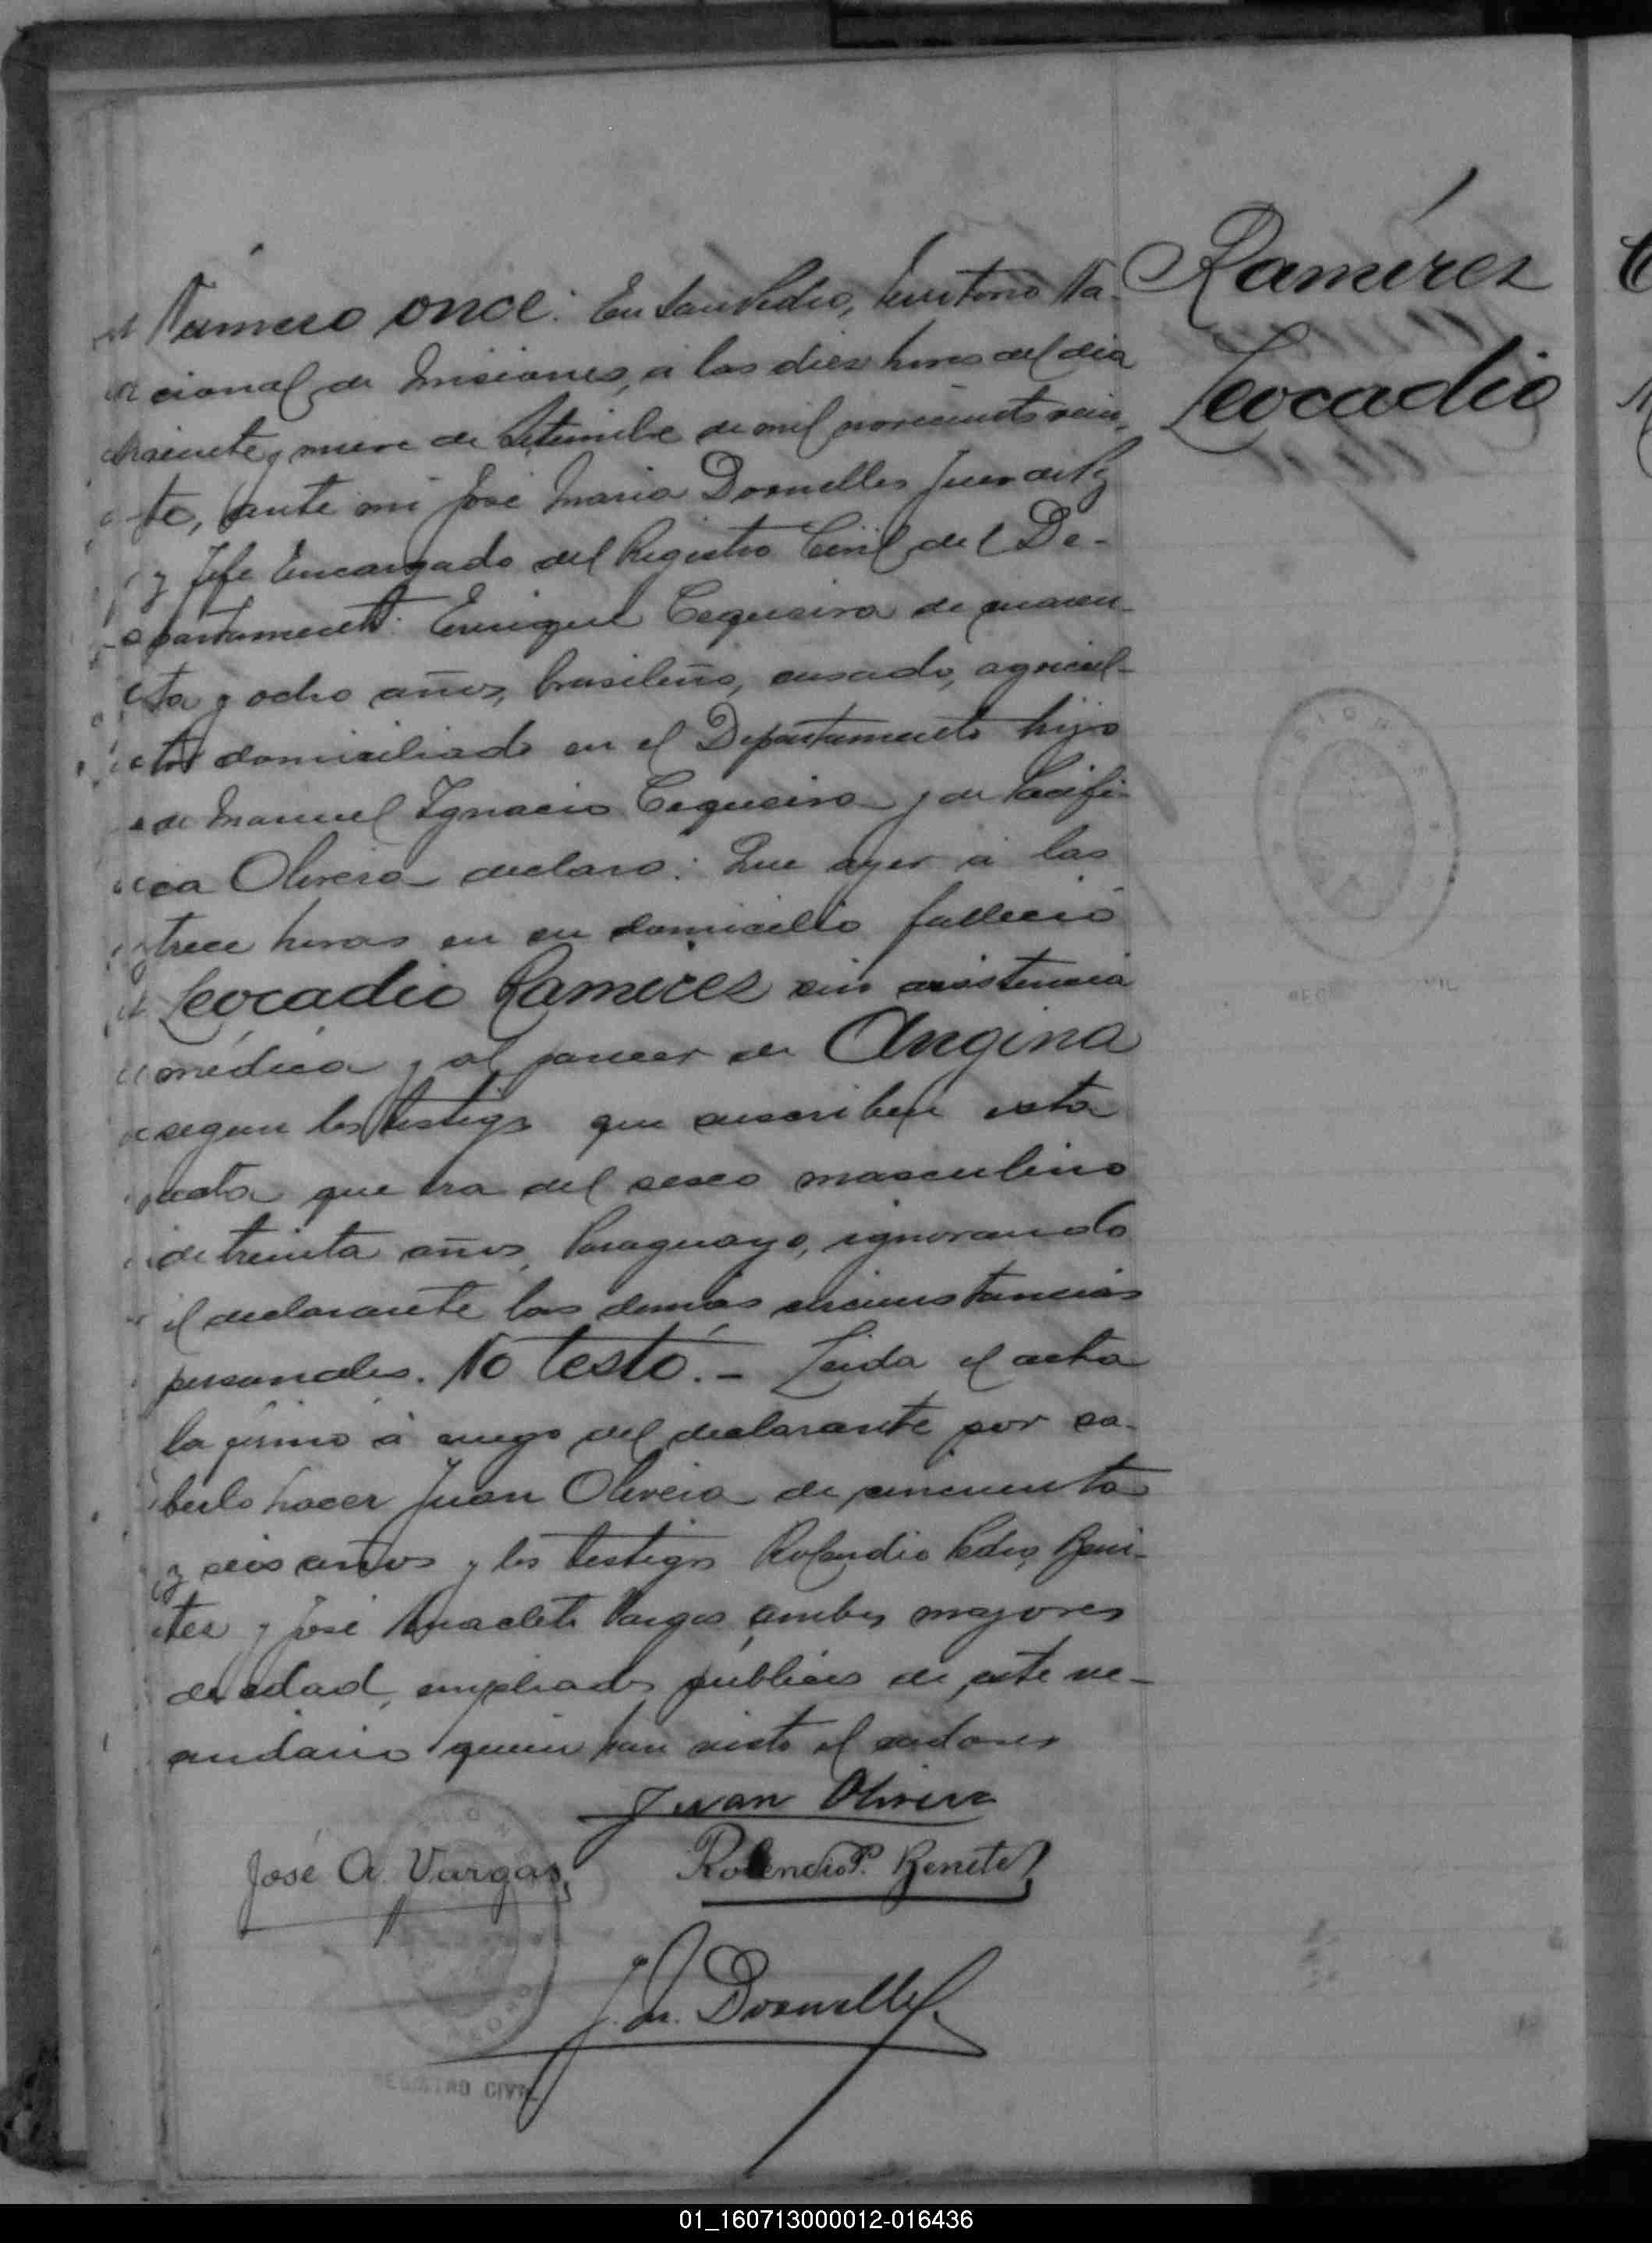 Ramírez
Leocadio
Número once: En San Pedro, Territorio Na-
cional de Misiones, a las diez horas del dia
veinte y nueve de Setiembre de mil novecientos vein-
te, ante mi José Maria Dornelles Juez de Paz
y Jefe Encargado del Registro Civil del De-
partamento: Enrique Cequeira de cuaren-
ta y ocho años, brasileño, casado, agricul-
tor domiciliado en el Departamento hijo
de Manuel Ignacio Cequeira y de Pacífi-
ca Olivera declaro: Que ayer á las
trece horas en su domicilio falleció
Leocadio Ramirez sin asistencia
médica y al parecer de Angina
segun los testigos que suscriben esta
acta que era del sexo masculino
de treinta años, Paraguayo, ignorando
el declarante las demás circunstancias
personales. No testó.- Leida el acta
la firmó á ruego del declarante por sa-
berlo hacer Juan Olivera de cincuenta
y seis años y los testigos Rosendio Pedro Beni-
tez y José Anacleto Vargas ambos mayores
de edad, empleados públicos de este ve-
cindario quien han visto el cadaver
Juan Olivera
José A. Vargas
P. Benitez
J. M. Dornelles
REGISTRO CIVIL
01_160713000012-016436